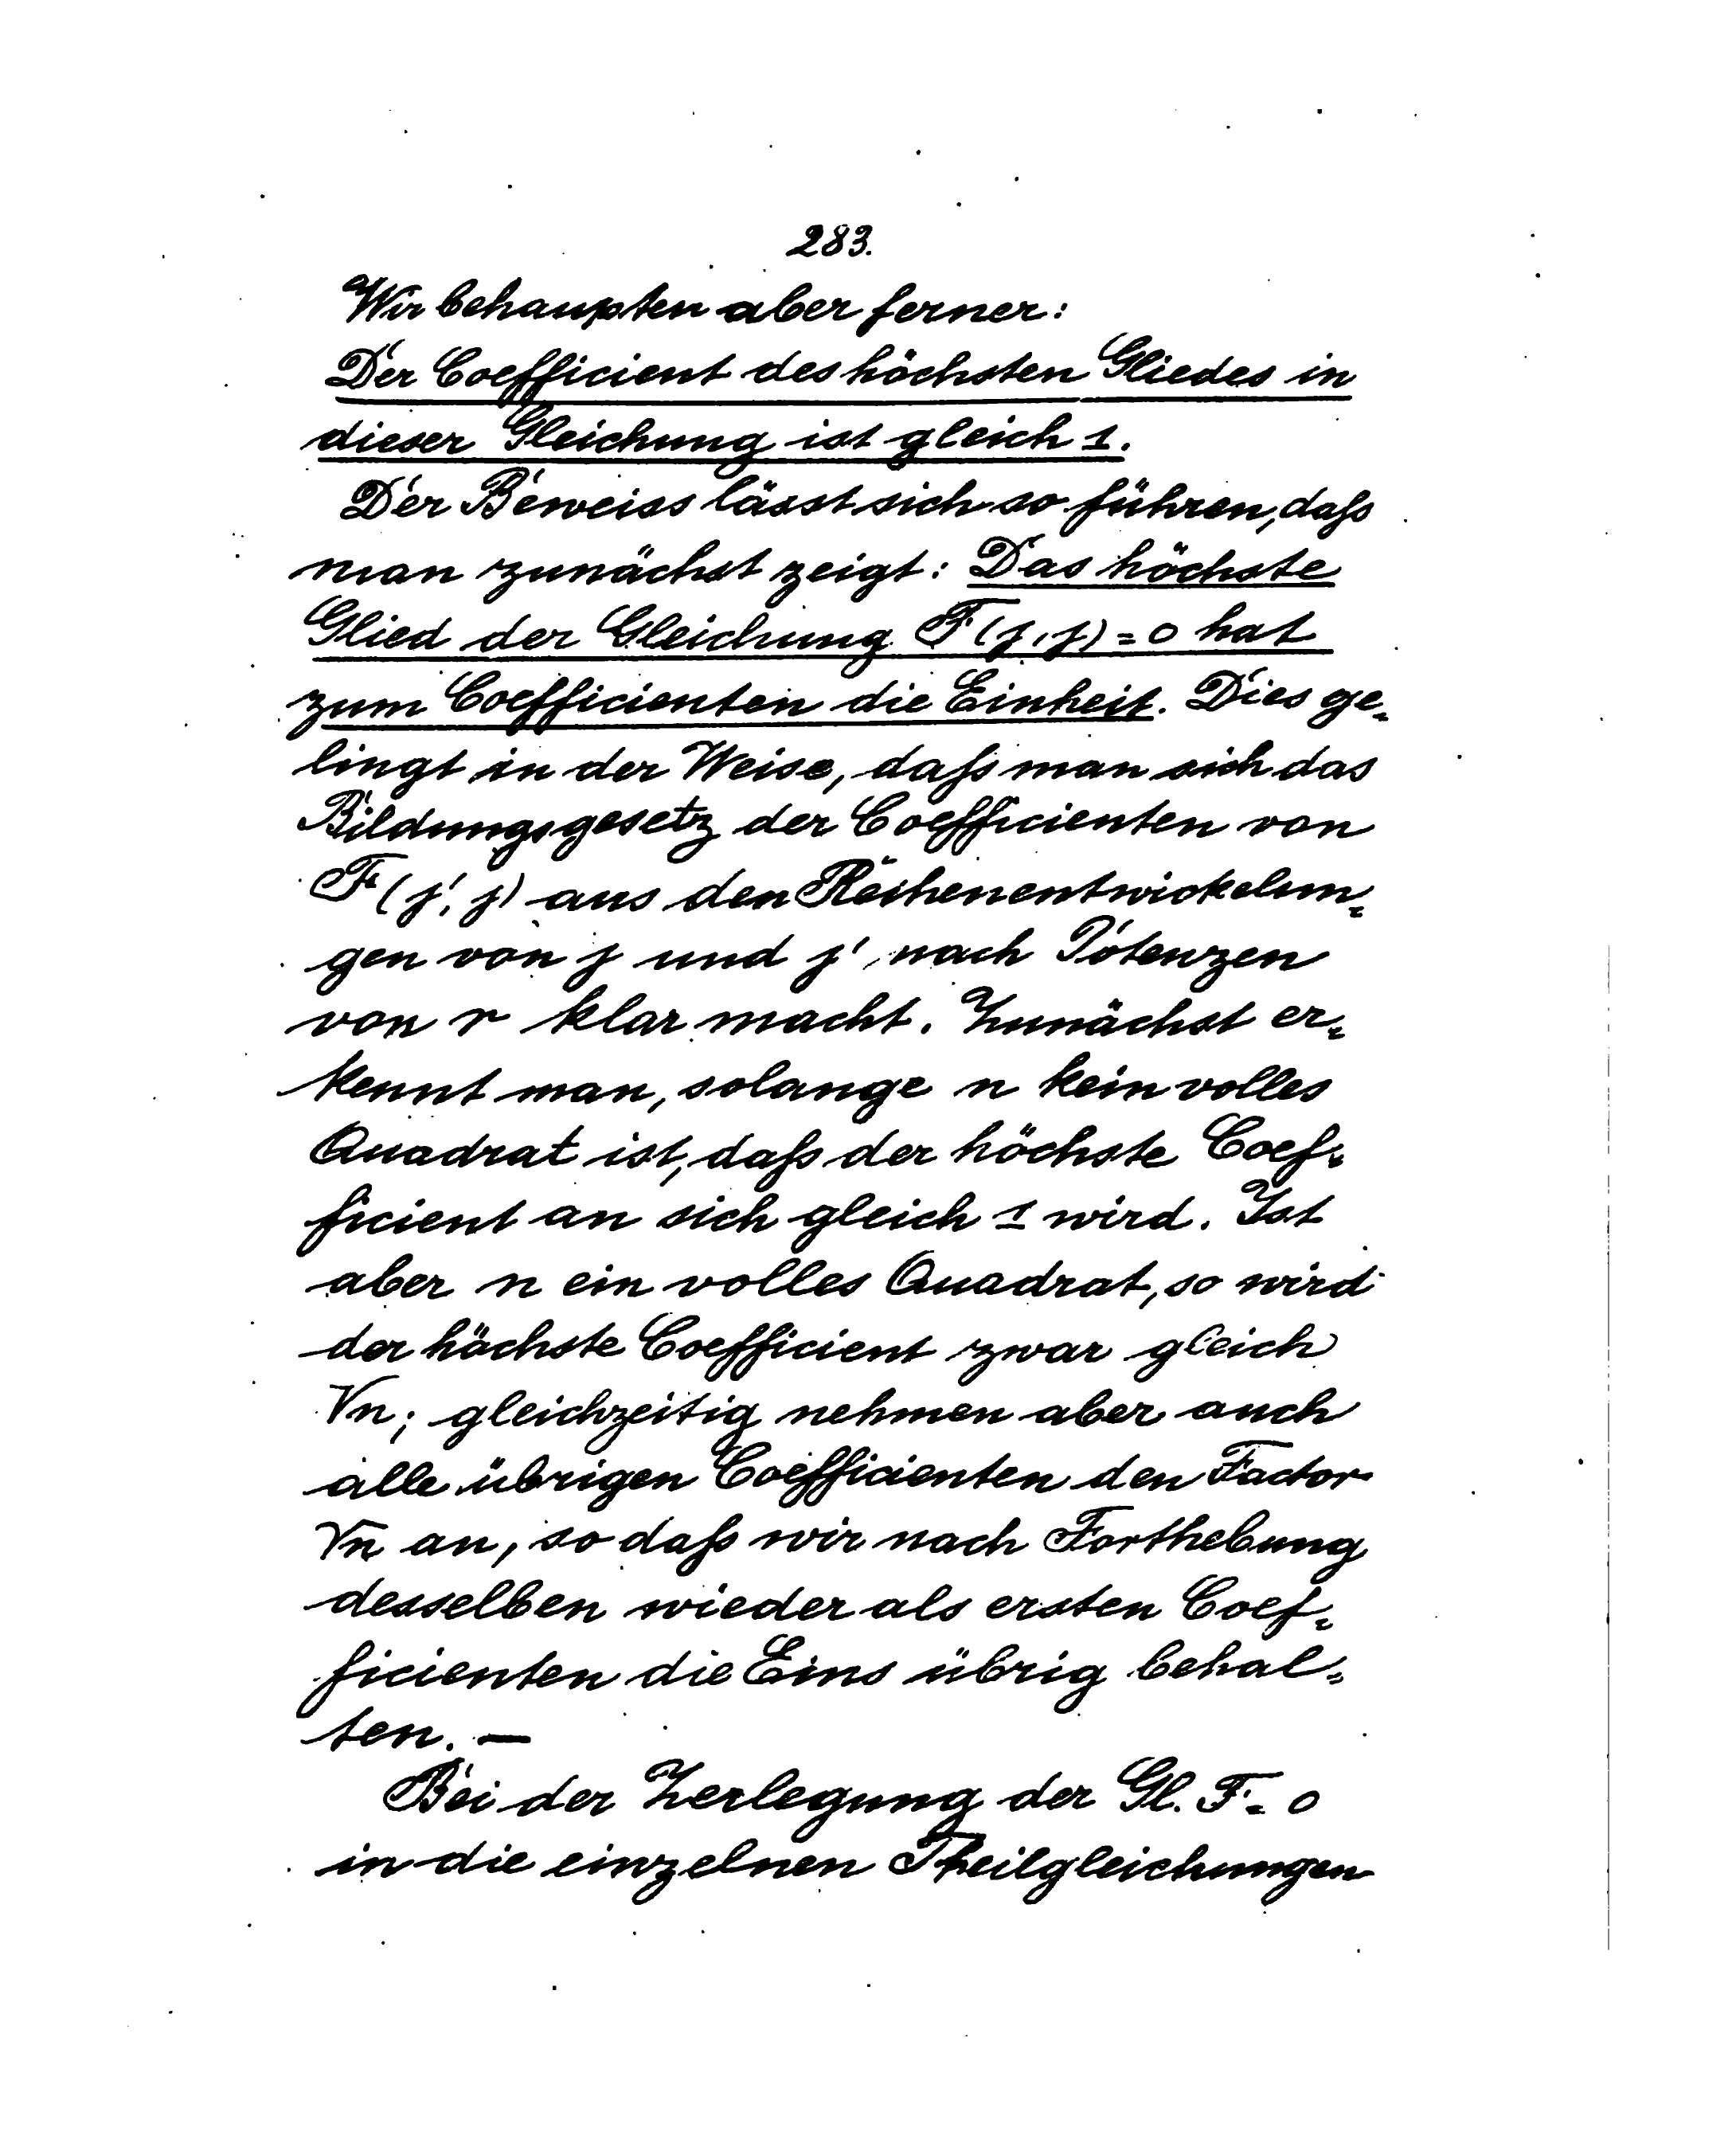 283.
Wir behaupten aber ferner:
Der Coefficient des höchsten Gliedes in
dieser Gleichung ist gleich 1.
Der Beweiss lässt sich so führen, daſs
man zunächst zeigt: Das höchste
Glied der Gleichung F(j,j)=0 hat
zum Coefficienten die Einheit. Dies ge=
lingt in der Weise, daſs man sich das
Bildungsgesetz der Coefficienten von
F(j', j) aus den Reihenentwickelun=
gen von j und j' nach Potenzen
von r klar macht. Zunächst er=
kennt man, solange n kein volles
Quadrat ist, daſs der höchste Coef=
ficient an sich gleich 1 wird. Ist
aber n ein volles Quadrat, so wird
der höchste Coefficient zwar gleich
√n; gleichzeitig nehmen aber auch
alle übrigen Coefficienten den Factor
√n an, so daſs wir nach Forthebung
desselben wieder als ersten Coef=
ficienten die Eins übrig behal=
ten. —
Bei der Zerlegung der Gl. F=0
in die einzelnen Theilgleichungen